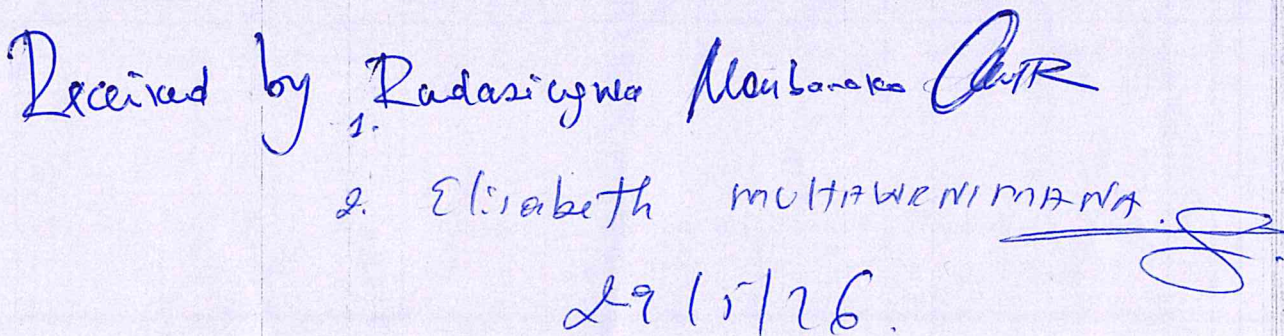 Received by 1. Rudasingwa Moubarake
2. Elisabeth MUHAWENIMANA.
29/5/26.